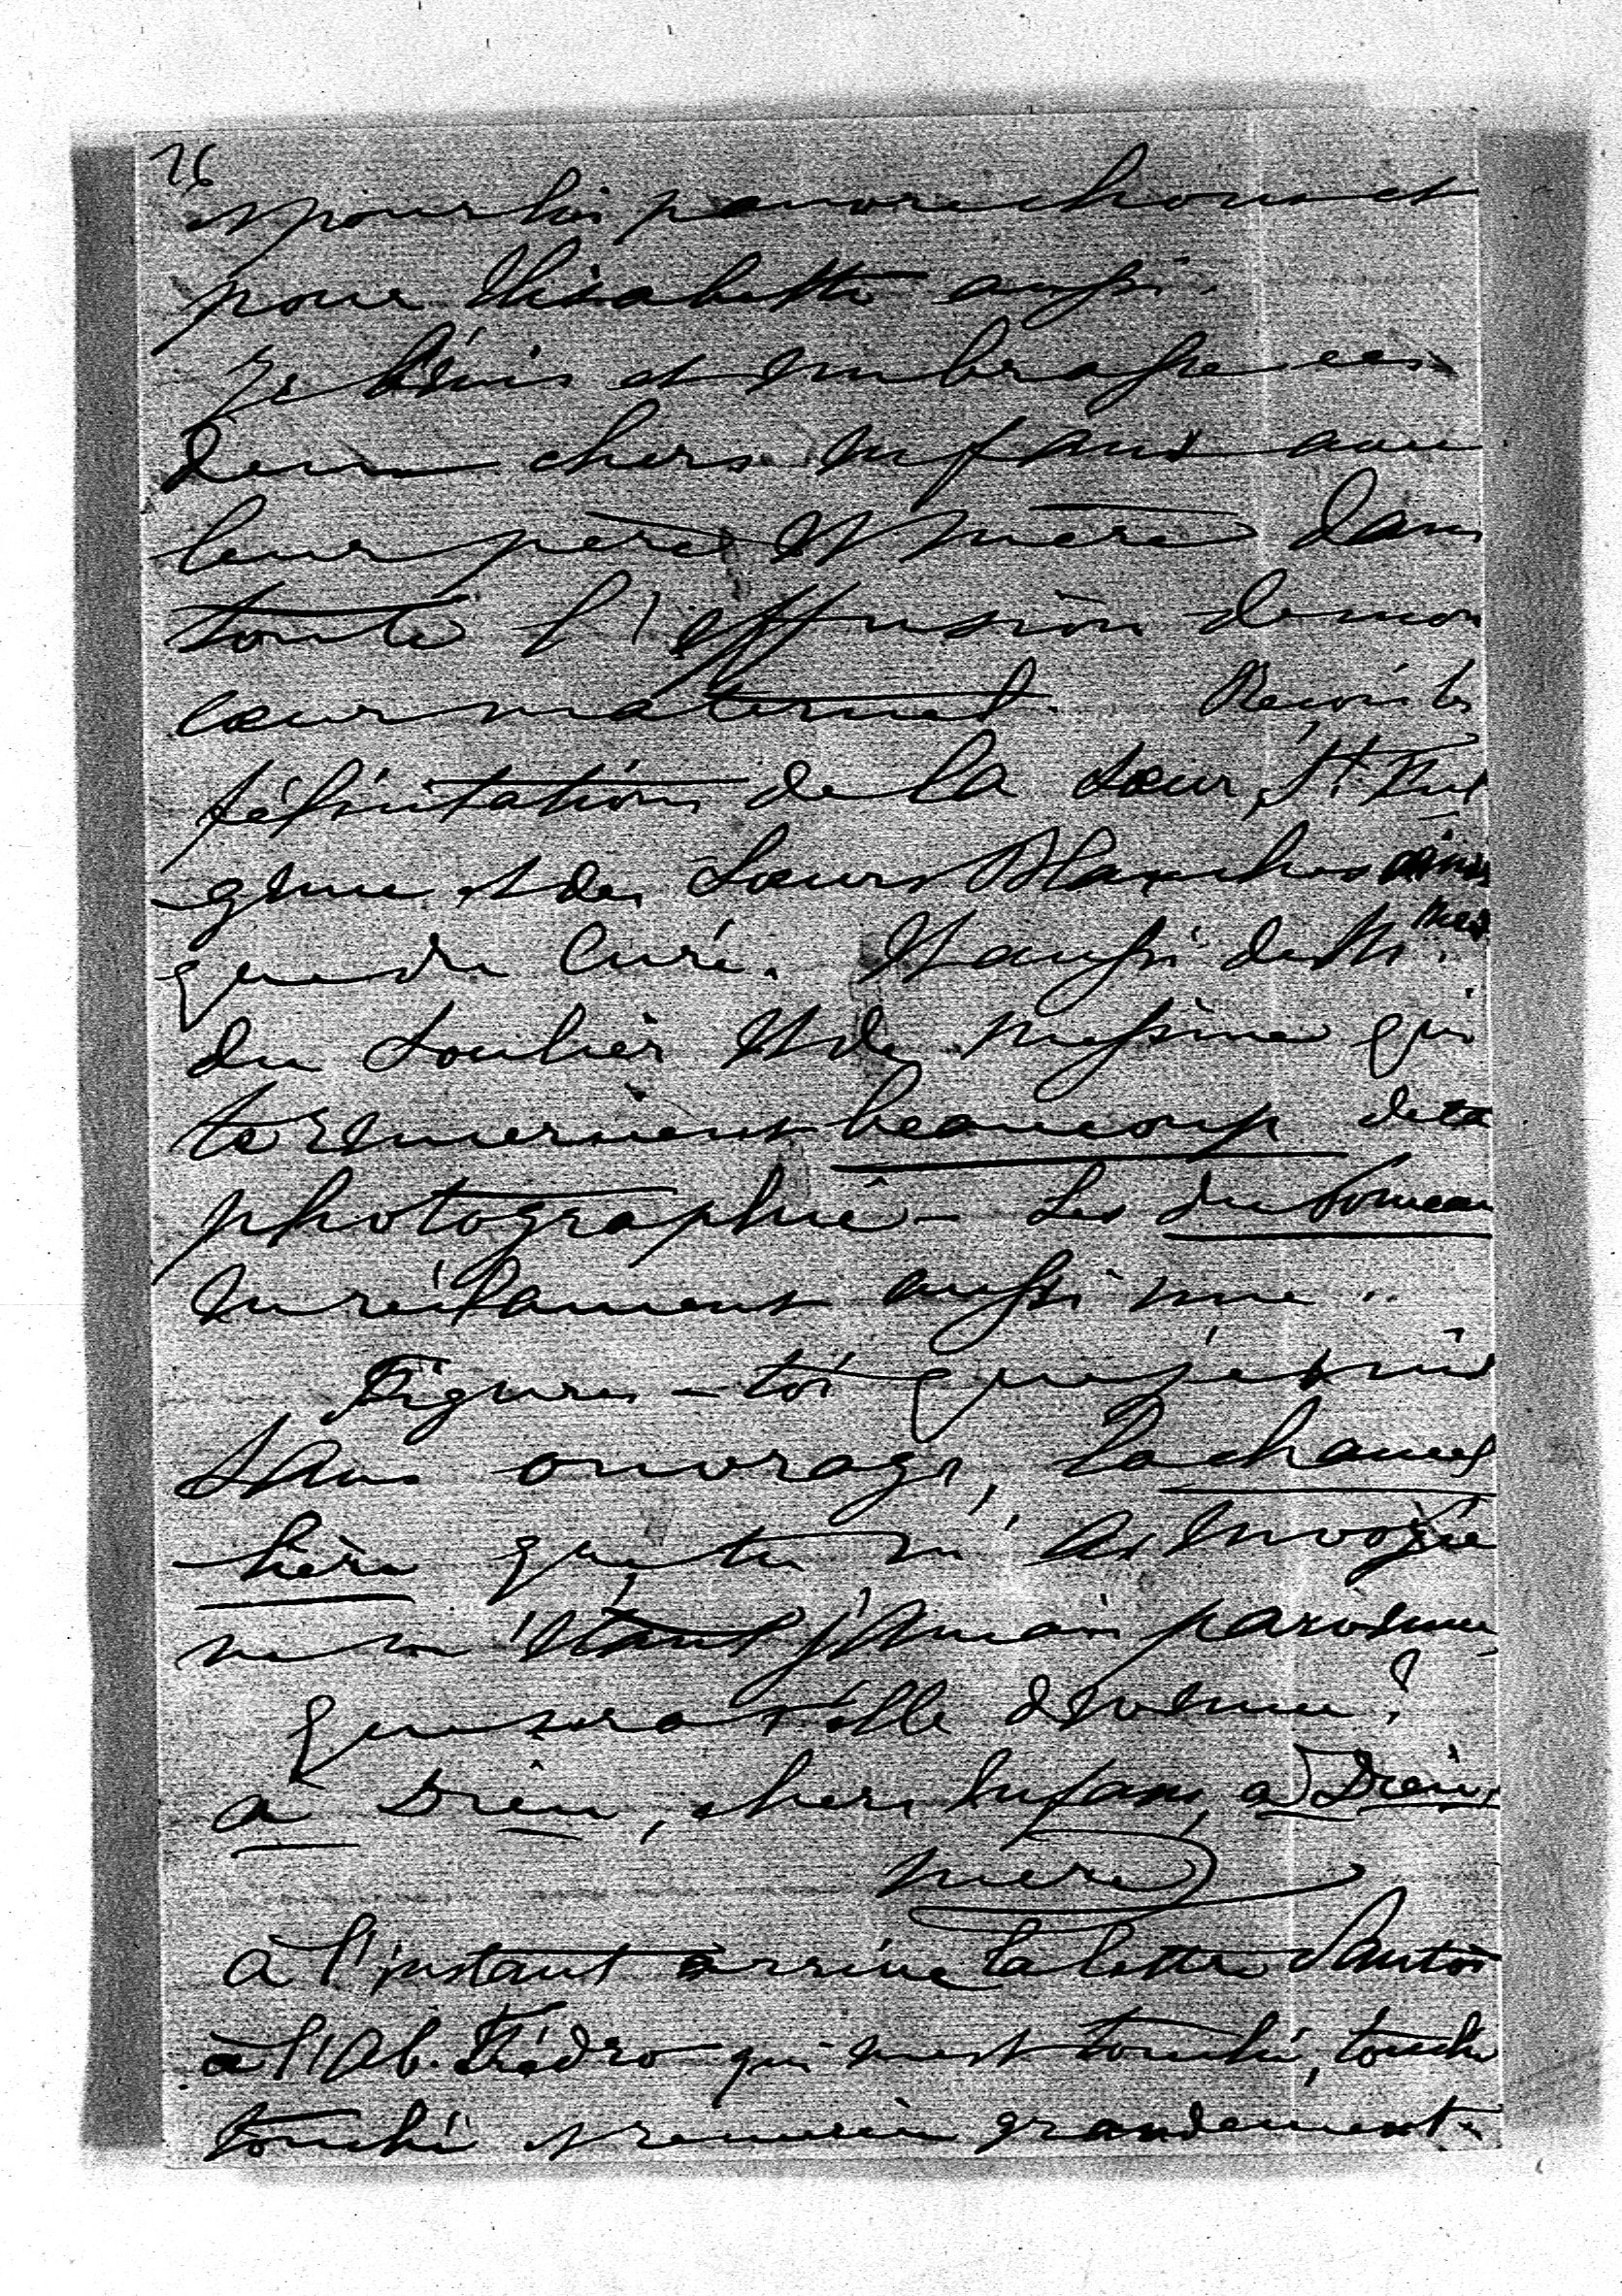 26
et pour toi pauvre choux et
pour Elisabethe aussi.
Je bénis et embrasse ces
deux chers enfans avec
leur père et mère dans
toute l'effusion de mon
cœur maternel. Reçois les
félicitations de la Sœur, St. Eu
génie et des Sœurs Blanches ainsi
que du Curé. Et aussi de M.mes
du Soulier et de Messine qui
te remercient beaucoup de ta
photographie - Les du
en réclament aussi une ..
Figures-toi que je suis
sans ouvrage, la chancel
lière que tu m'as envoyée
ne m'étant jamais parvenue,
que sera t'elle devenue?
à Dieu, chers Enfans, à Dieu,
mère
à l'instant arrive ta lettre d'
à l'Ab. qui en est touché, touché
touché et remercie grandement.